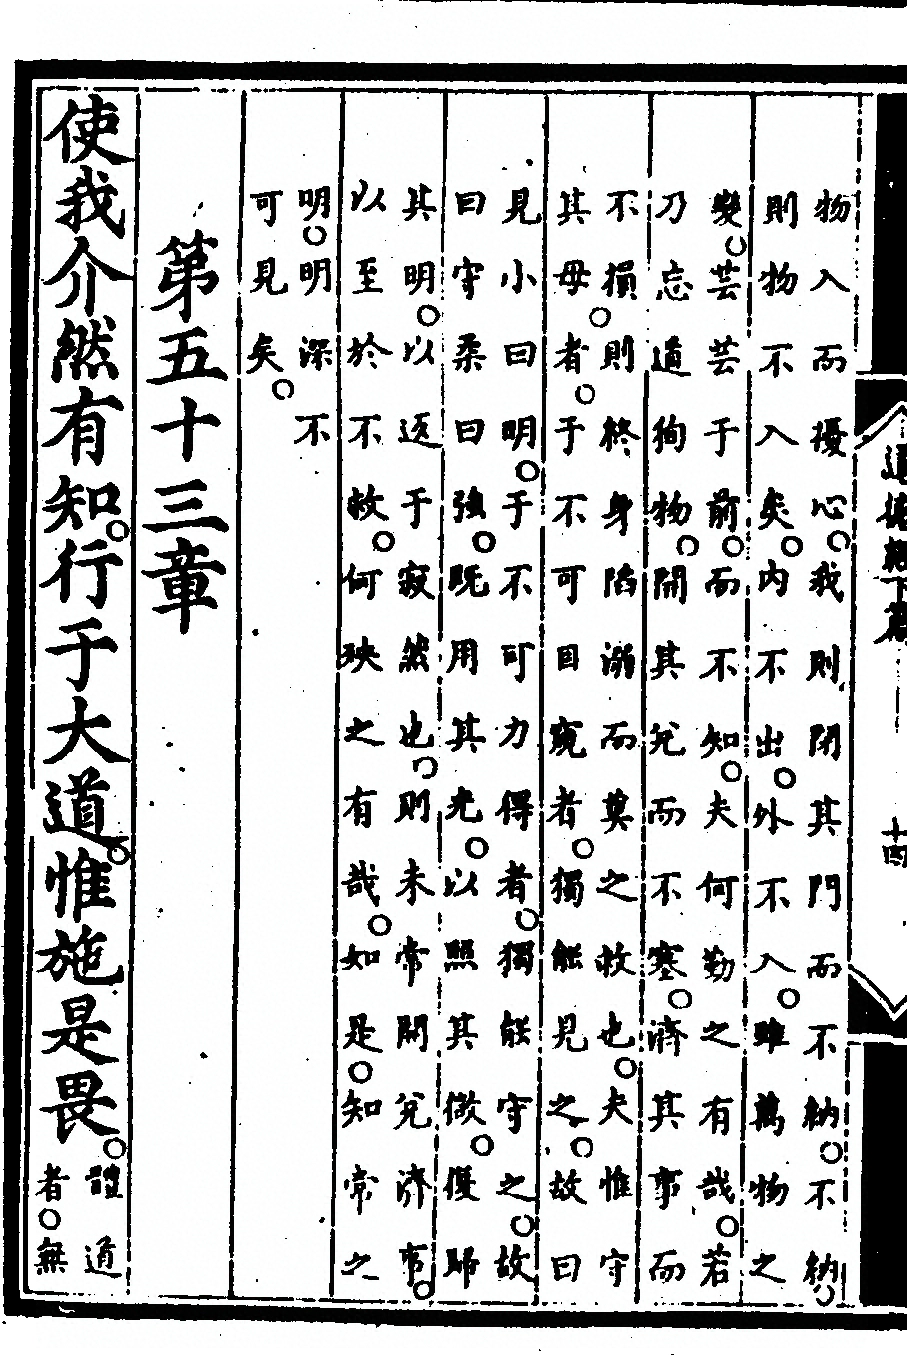 道德經下篇
十四
物入而擾心。我則閉其門而不納。不納。
則物不入矣。內不出。外不入。雖萬物之
變。芸芸于前。而不知。夫何勤之有哉。若
乃忘道徇物。開其兌而不塞。濟其事而
不損。則終身陷溺而莫之救也。夫惟守
其母者。于不可目窺者。獨能見之。故曰
見小曰明。于不可力得者。獨能守之。故
曰守柔曰強。既用其光。以照其微。復歸
其明。以返于寂然也。則未常開兌濟事。
以至於不救。何殃之有哉。如是。知常之
明。明深不
可見矣。
第五十三章
使我介然有知。行于大道。惟施是畏。
體道
者。無